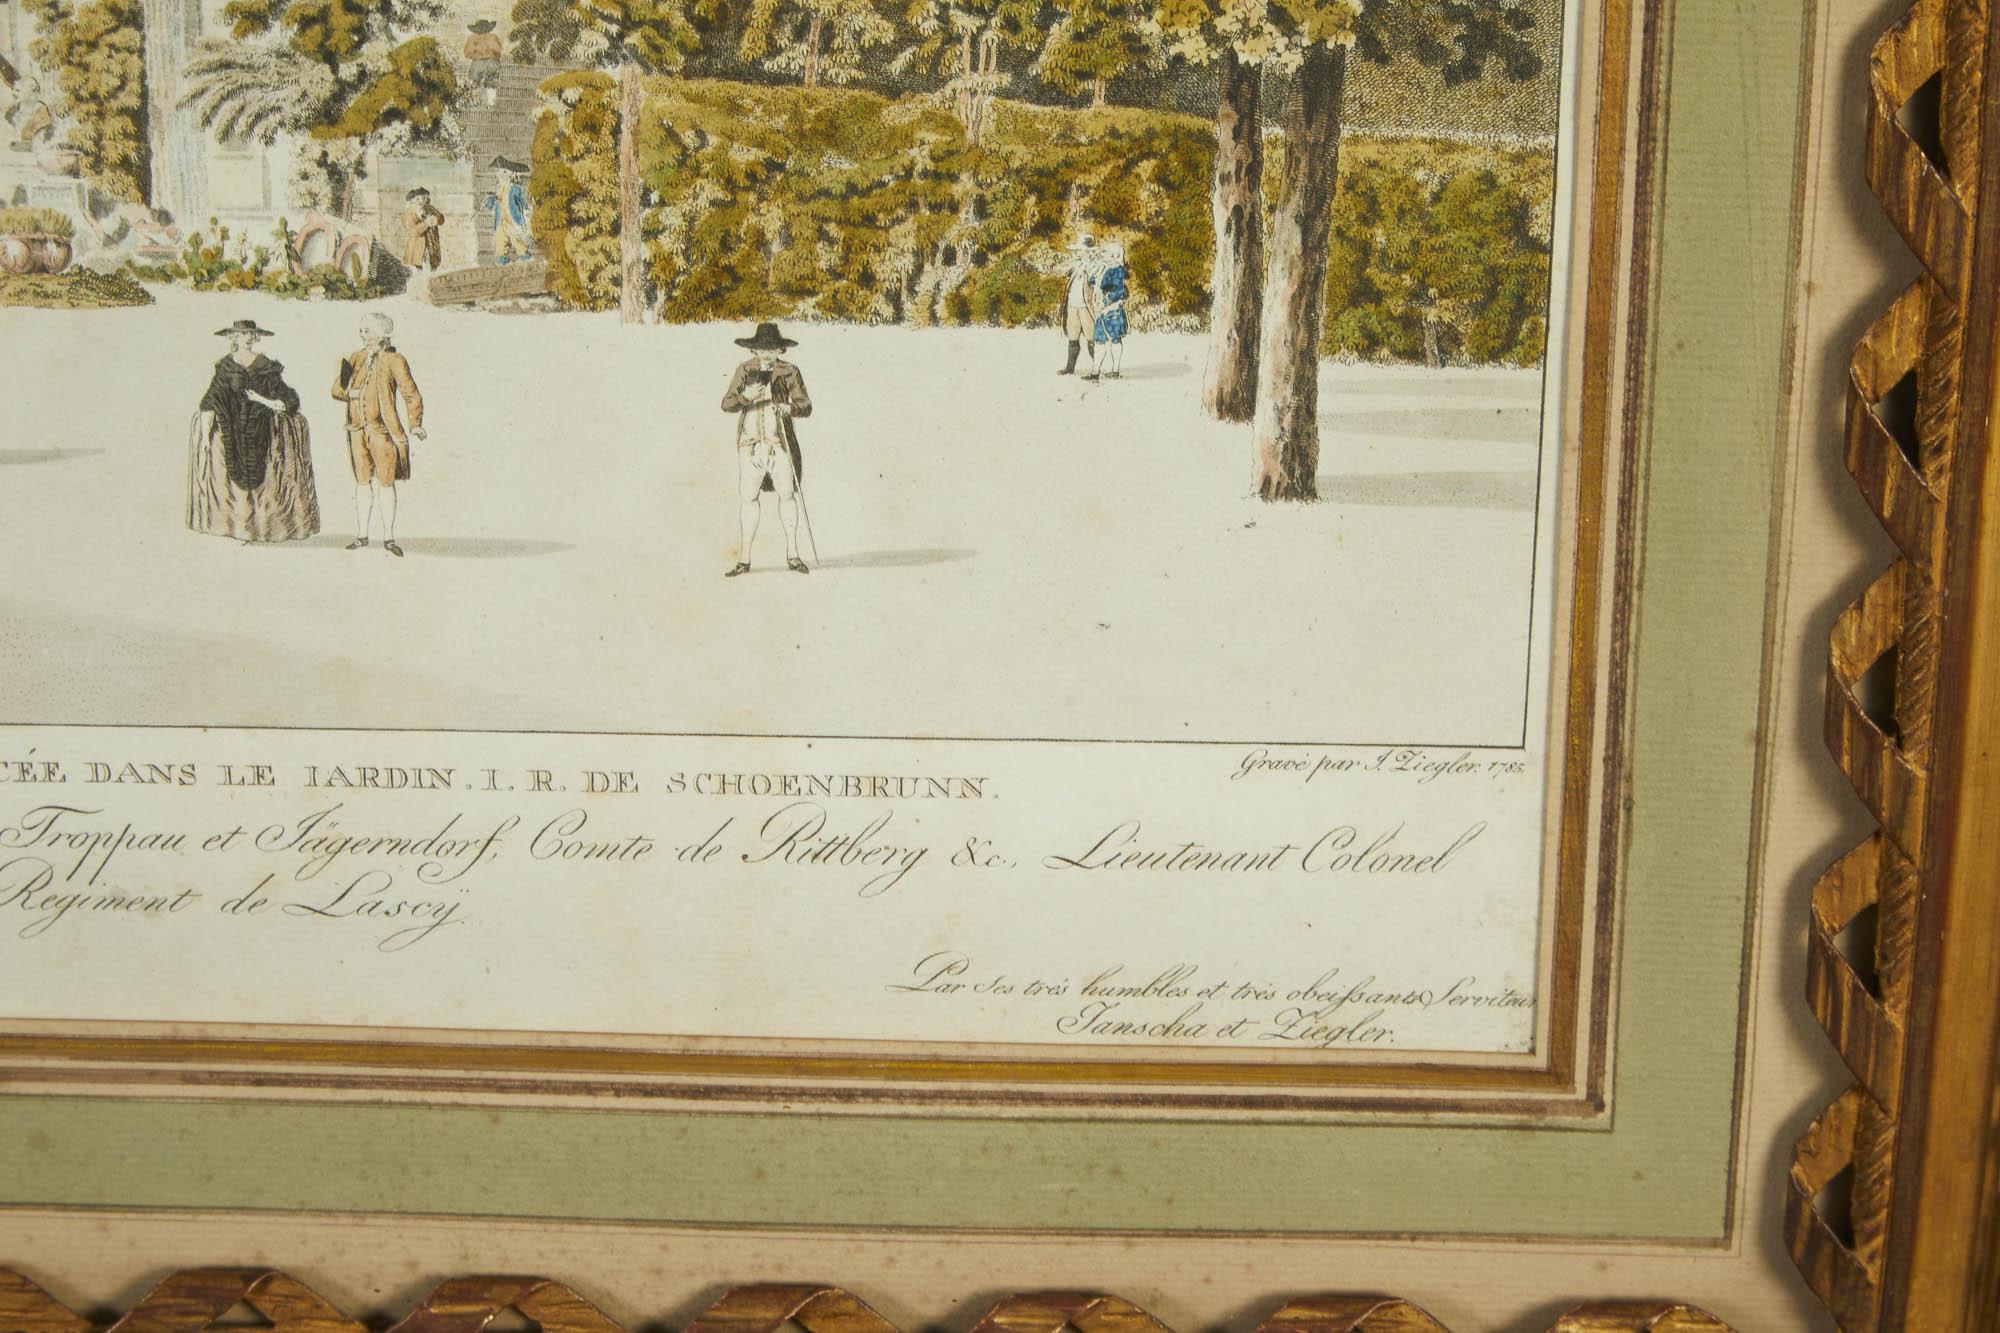 CÉE DANS LE IARDIN. I. R. DE SCHOENBRUNN.
Gravé par J. Ziegler. 1785.
Troppau et Jägerndorf, Comte de Rittberg &c., Lieutenant Colonel
Regiment de Lascÿ.
Par Ses trés humbles et trés obeiſsants Serviteur
Janscha et Ziegler.